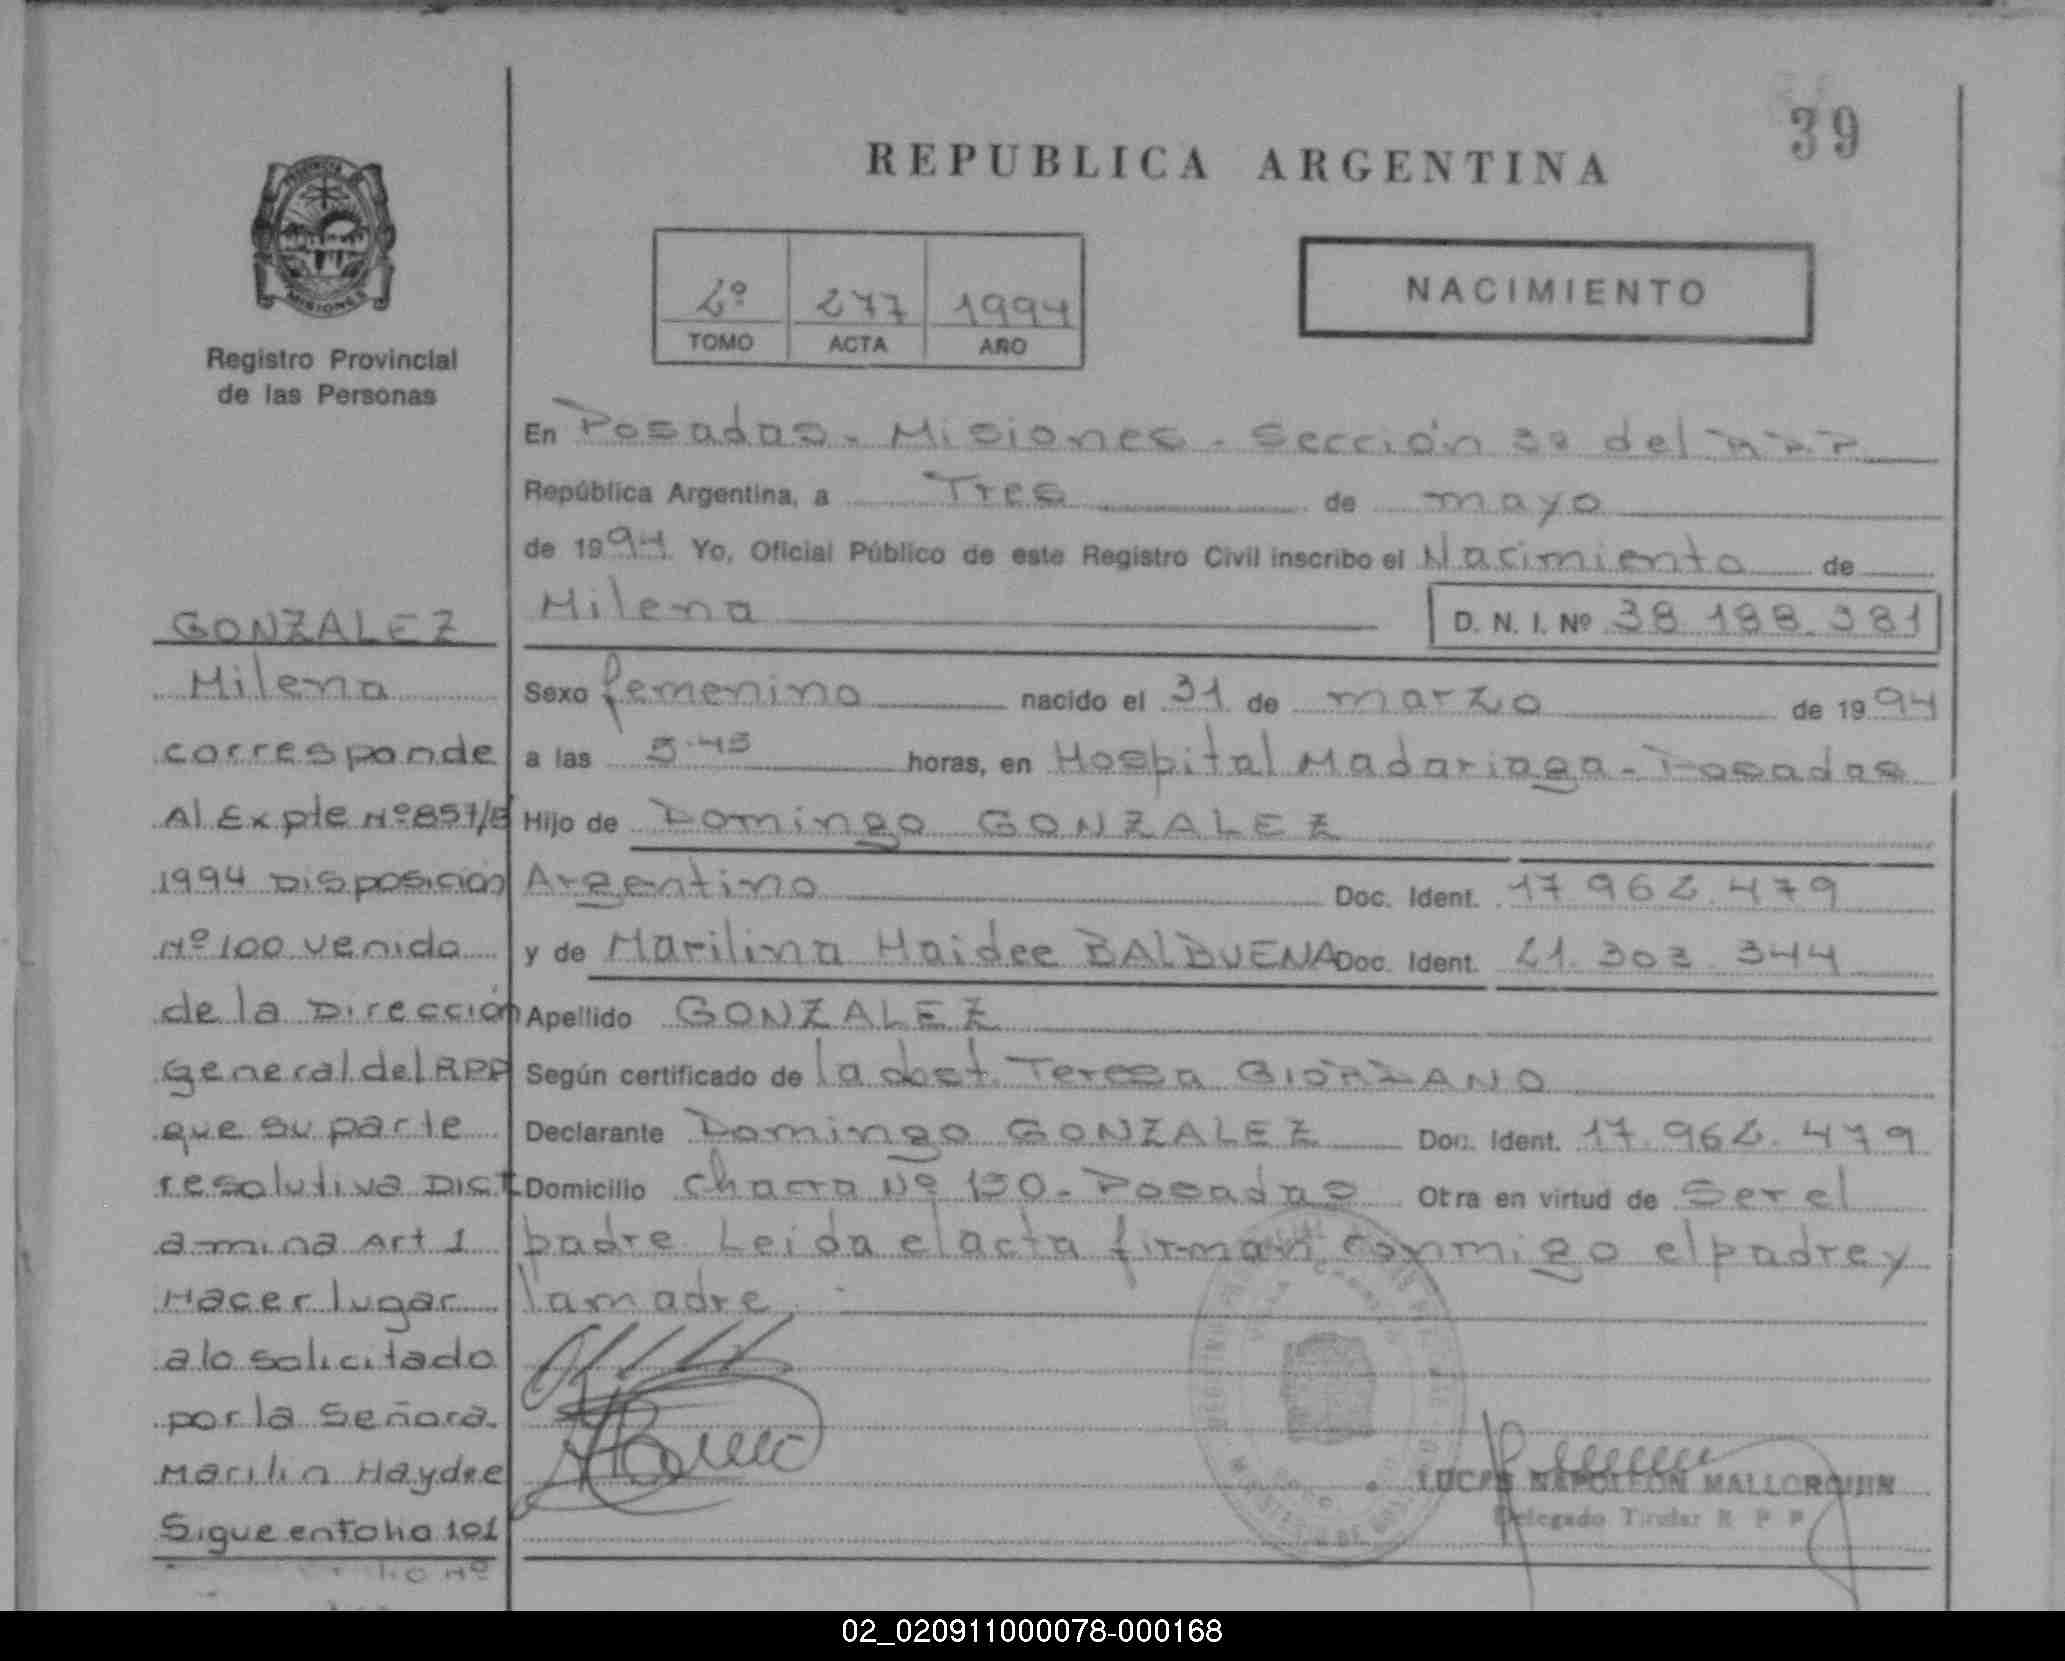 39
REPUBLICA ARGENTINA
2º 277 1994
TOMO ACTA AÑO
NACIMIENTO
MISIONES
Registro Provincial
de las Personas
En Posadas - Misiones - Sección 3ª del RPP
República Argentina, a Tres de mayo
de 1994 Yo, Oficial Público de este Registro Civil inscribo el Nacimiento de
Milena D. N. I. Nº 38.188.381
Sexo femenino nacido el 31 de marzo de 1994
a las 5.45 horas, en Hospital Madariaga - Posadas
Hijo de Domingo GONZALEZ
Argentino Doc. Ident. 17.962.479
y de Marilina Haidee BALBUENA Doc. Ident. 21.303.344
Apellido GONZALEZ
Según certificado de la obst. Teresa GIORDANO
Declarante Domingo GONZALEZ Doc. Ident. 17.962.479
Domicilio Chacra Nº 150 - Posadas Otra en virtud de Ser el
padre Leida el acta firman conmigo el padre y
la madre.
LUCAS NAPOLEON MALLORQUIN
Delegado Titular R P P
GONZALEZ
Milena
corresponde
Al Expte Nº 857/B
1994 Disposición
Nº 100 venida
de la Dirección
General del RPP
que su parte
resolutiva Dict
amina Art 1
Hacer lugar
a lo solicitado
por la Señora
Marilin Haydee
Sigue en folio 101
02_020911000078-000168